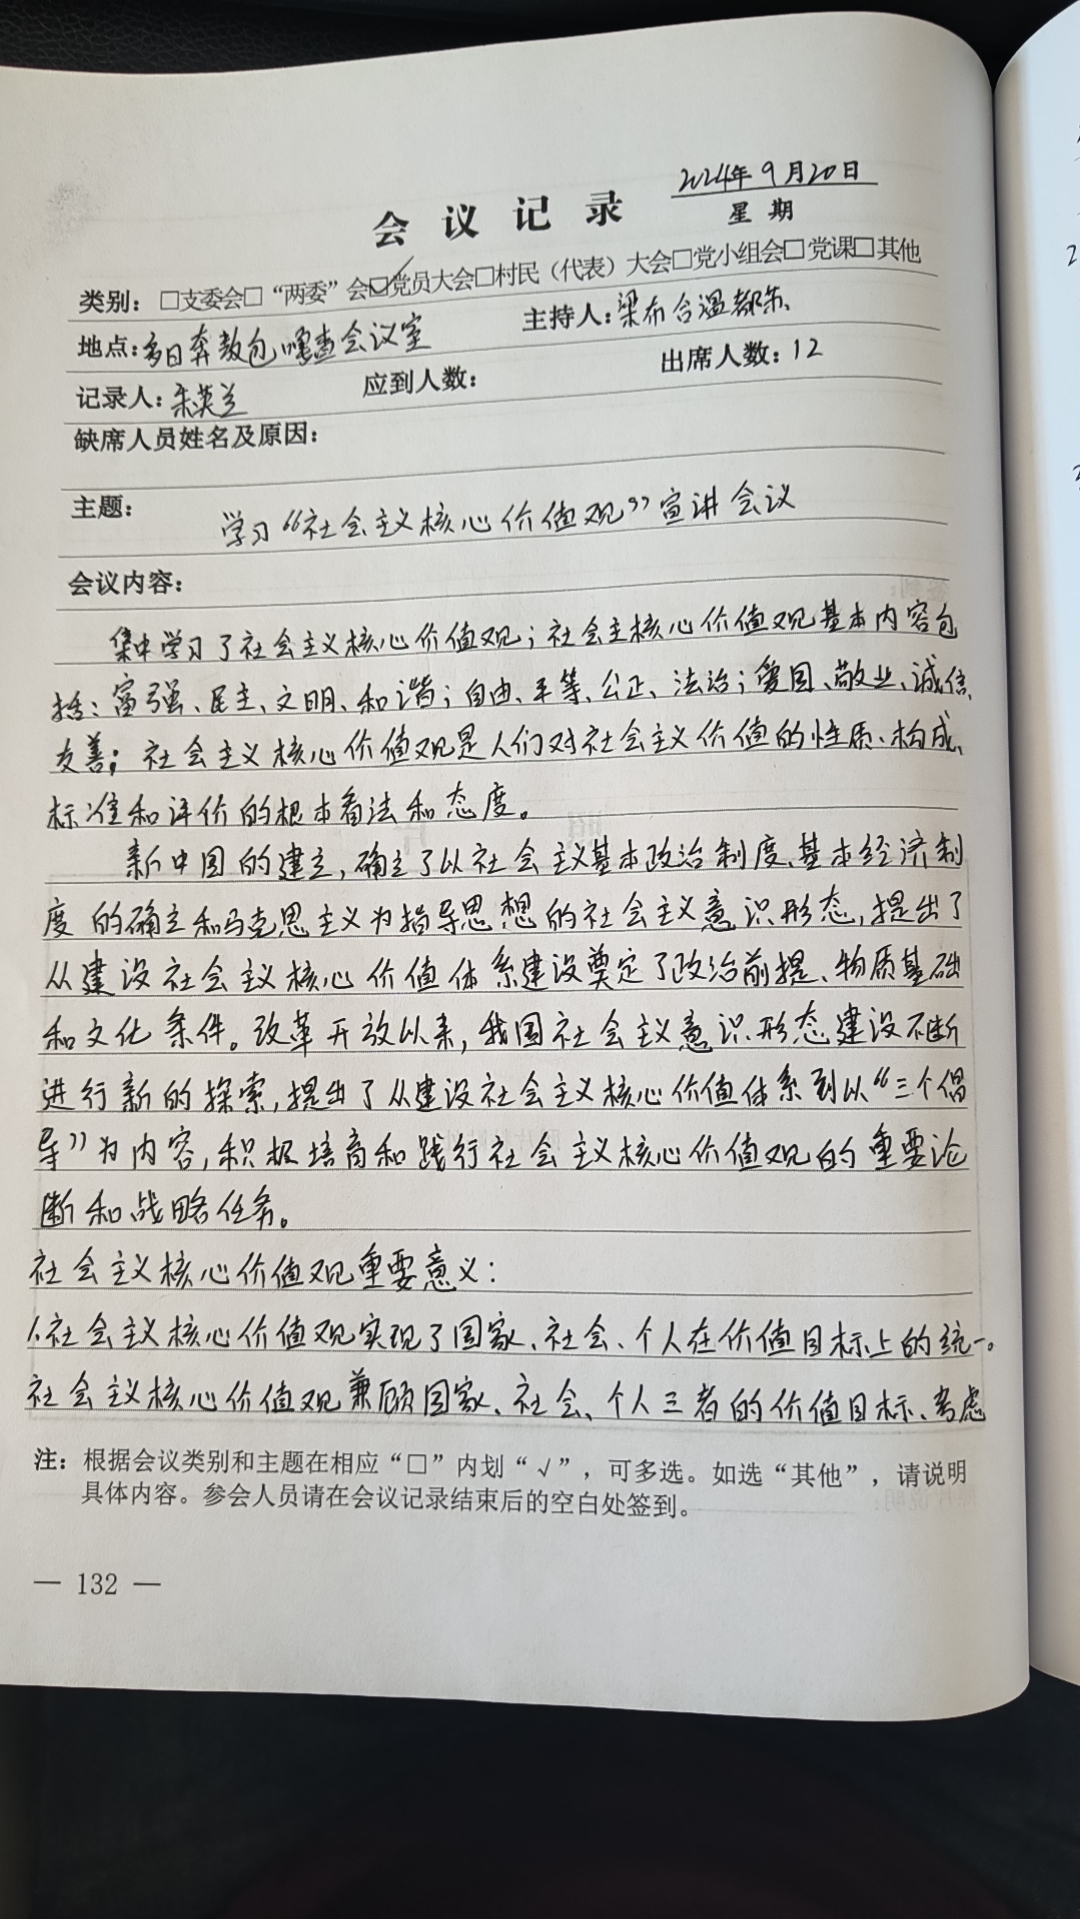 2024年9月20日
会议记录
星期
类别：□支委会□“两委”会☑党员大会□村民（代表）大会□党小组会□党课□其他
地点：多日奔敖包嘎查会议室 主持人：梁布合温都朱
记录人：朱英兰 应到人数： 出席人数：12
缺席人员姓名及原因：
主题： 学习“社会主义核心价值观”宣讲会议
会议内容：
集中学习了社会主义核心价值观；社会主核心价值观基本内容包
括：富强、民主、文明、和谐；自由、平等、公正、法治；爱国、敬业、诚信、
友善；社会主义核心价值观是人们对社会主义价值的性质、构成、
标准和评价的根本看法和态度。
新中国的建立，确立了以社会主义基本政治制度、基本经济制
度的确立和马克思主义为指导思想的社会主义意识形态，提出了
从建设社会主义核心价值体系建设奠定了政治前提、物质基础
和文化条件。改革开放以来，我国社会主义意识形态建设不断
进行新的探索，提出了从建设社会主义核心价值体系到以“三个倡
导”为内容，积极培商和践行社会主义核心价值观的重要论
断和战略任务。
社会主义核心价值观重要意义：
1.社会主义核心价值观实现了国家、社会、个人在价值目标上的统一。
社会主义核心价值观兼顾国家、社会、个人三者的价值目标、考虑
注：根据会议类别和主题在相应“□”内划“√”，可多选。如选“其他”，请说明
具体内容。参会人员请在会议记录结束后的空白处签到。
— 132 —